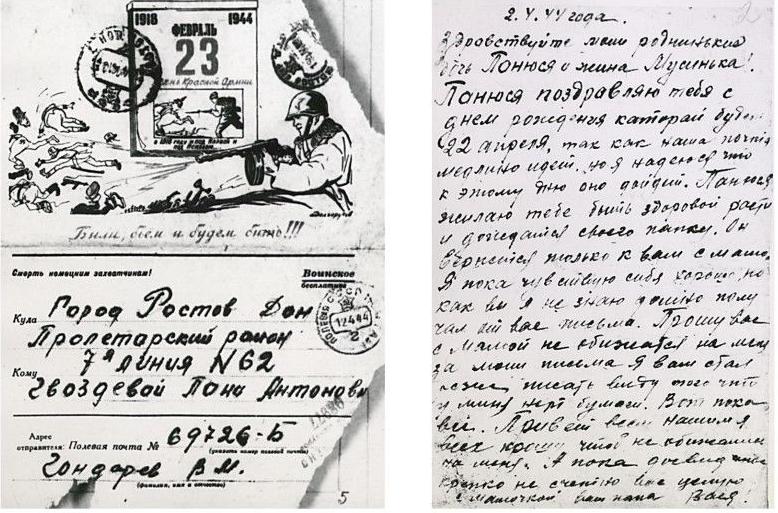 1918 1944
ФЕВРАЛЬ
23
День Красной Армии
в 1918 году и под Нарвой и под Псковом.
Били, бьем и будем бить!!!
Смерть немецким захватчикам!
Воинское
бесплатное
Куда Город Ростов Дон
Пролетарский район
7я Линия N 62
Кому Гвоздевой Пана Антоновн
12 4 44
Адрес отправителя: Полевая почта № 69726-Б
(указать номер полевой почты)
Гондарев В.М.
(фамилия, имя и отчество)
5
2. V. 44 года.
Здравствуйте мои роднинькие
дочь Панюся и жина Мусинька!
Панюся поздравляю тебя с
днем рождения каторай будет
22 апреля, так как наша почта
медлино идет. но я надеюся что
к этому дню оно дойдит. Панюся
жилаю тебе быть здоровой расти
и дождатся своего папки. Он
вернется только к вам с мамо
Я пока чувствую себя хорошо, но
как вы я не знаю давно полу
чал от вас письма. Прошу вас
с мамой не обижатся на меня
за мои письма я вам стал
писать ввиду того что
у миня нет бумаги. Вот пока
все. Привет всем нашим я
всех прошу чтоб не обижались
на меня. А пока досвидания
крепко не счетно вас целую
с мамочкой ваш папа Вася!